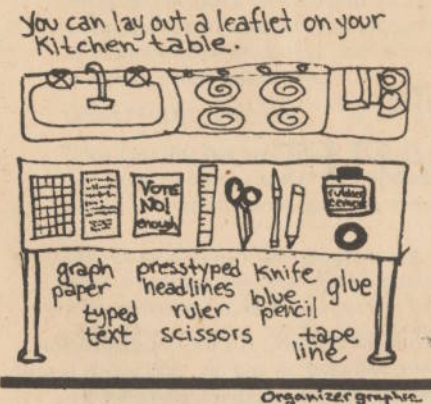 You can lay out a leaflet on your
Kitchen table.
VOTE
NO!
enough
rubber
cement
graph
paper
typed
text
presstyped
headlines
ruler
scissors
Knife
blue
pencil
glue
tape
line
Organizer graphic